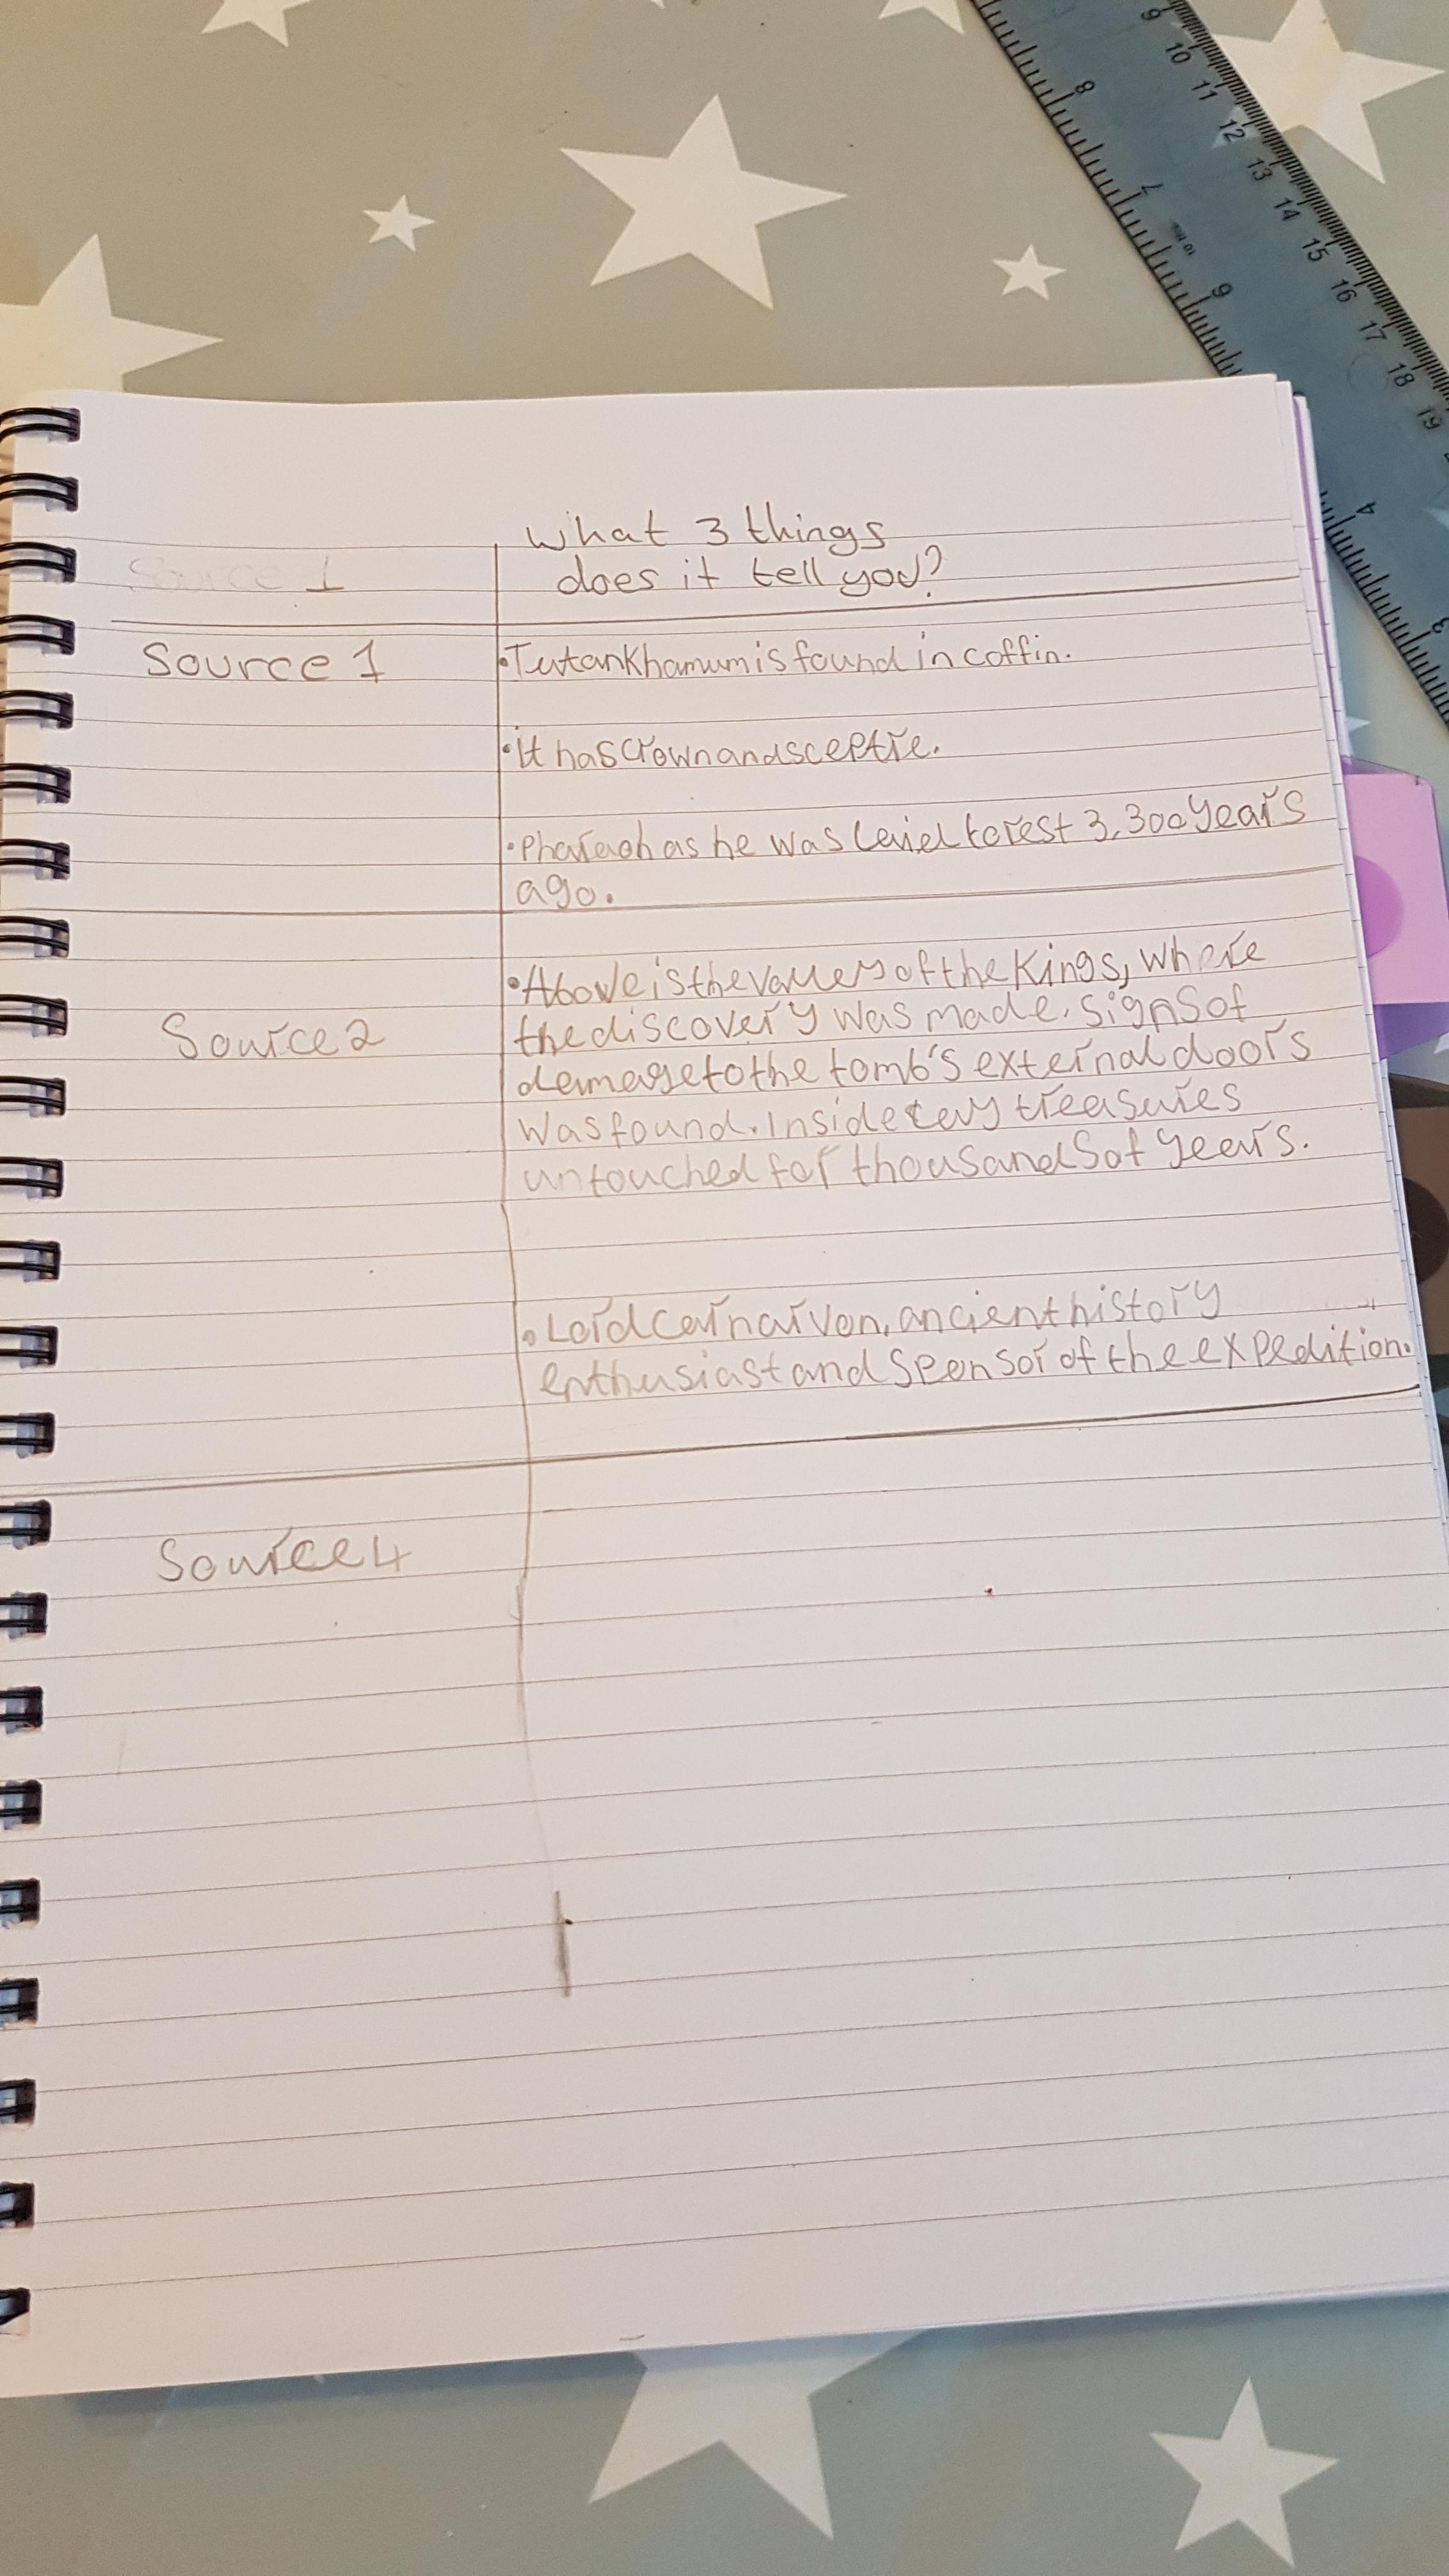 What 3 things
does it tell you?
Source 1
Source 1
•Tutankhamum is found in coffin.
•it has crown and sceptre.
•Pharaoh as he was laid to rest 3,300 years
ago.
Source 2
•Above is the valley of the Kings, where
the discovery was made. signs of
damage to the tomb's external doors
was found. Inside lay treasures
untouched for thousands of years.
•Lord Carnarvon, ancient history
enthusiast and sponsor of the expedition.
Source 4
8
7
6
4
3
9
10
11
12
13
14
15
16
17
18
19